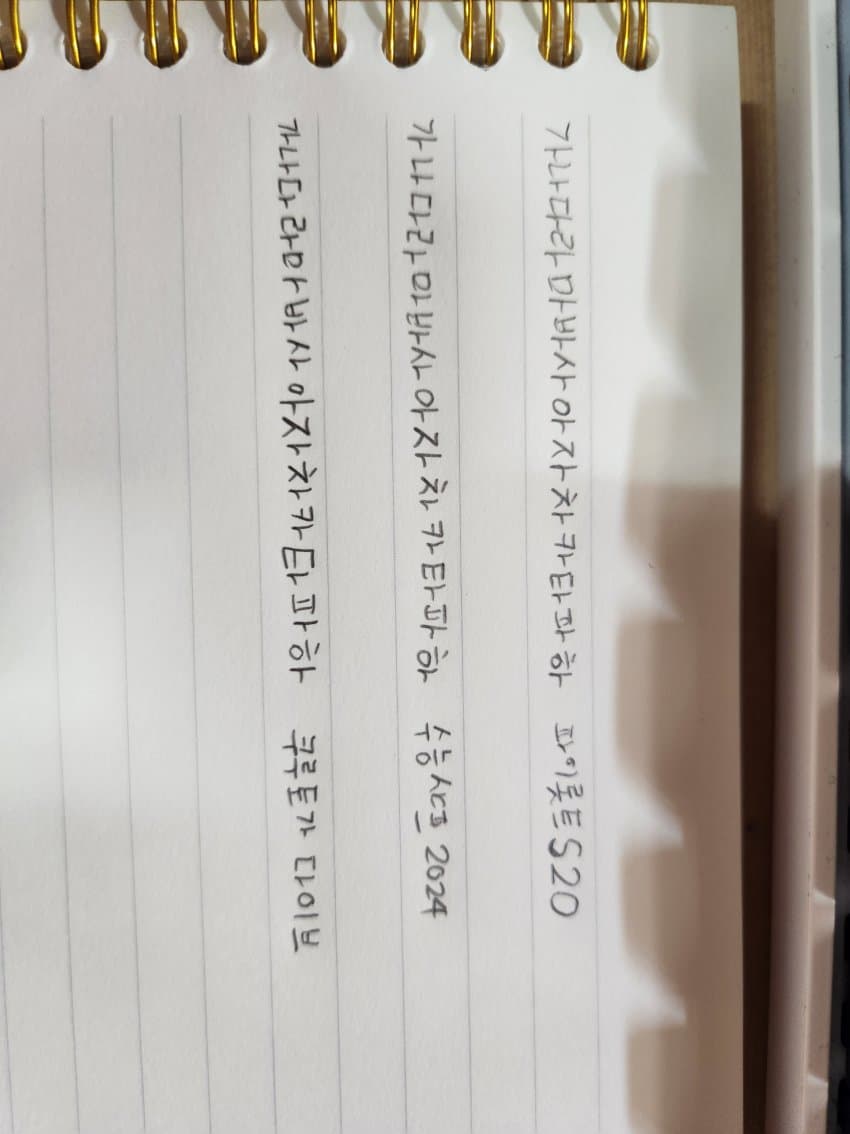 가나다라마바사아자차카타파하 파이롯트 S20
가나다라마바사아자차카타파하 수능샤프 2024
가나다라마바사아자차카타파하 쿠루토가 다이브